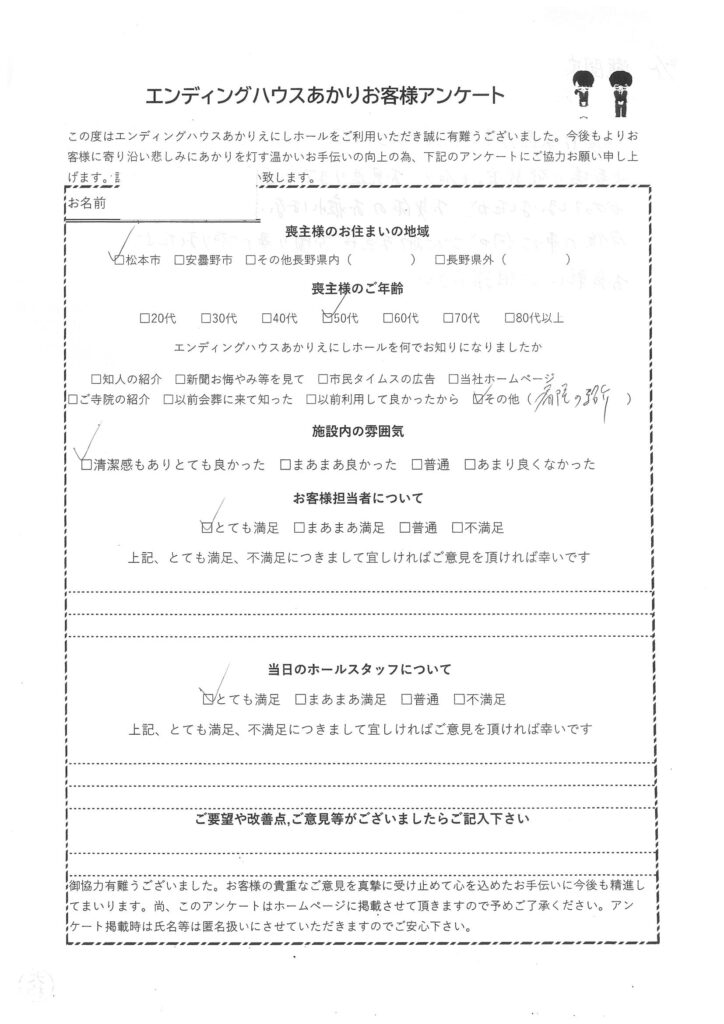 エンディングハウスあかりお客様アンケート
この度はエンディングハウスあかりえにしホールをご利用いただき誠に有難うございました。今後もよりお
客様に寄り沿い悲しみにあかりを灯す温かいお手伝いの向上の為、下記のアンケートにご協力お願い申し上
げます。 い致します。
お名前
喪主様のお住まいの地域
☑松本市 □安曇野市 □その他長野県内( ) □長野県外( )
喪主様のご年齢
□20代 □30代 □40代 ☑50代 □60代 □70代 □80代以上
エンディングハウスあかりえにしホールを何でお知りになりましたか
□知人の紹介 □新聞お悔やみ等を見て □市民タイムスの広告 □当社ホームページ
□ご寺院の紹介 □以前会葬に来て知った □以前利用して良かったから ☑その他( の紹介 )
施設内の雰囲気
☑清潔感もありとても良かった □まあまあ良かった □普通 □あまり良くなかった
お客様担当者について
☑とても満足 □まあまあ満足 □普通 □不満足
上記、とても満足、不満足につきまして宜しければご意見を頂ければ幸いです
当日のホールスタッフについて
☑とても満足 □まあまあ満足 □普通 □不満足
上記、とても満足、不満足につきまして宜しければご意見を頂ければ幸いです
ご要望や改善点,ご意見等がございましたらご記入下さい
御協力有難うございました。お客様の貴重なご意見を真摯に受け止めて心を込めたお手伝いに今後も精進し
てまいります。尚、このアンケートはホームページに掲載させて頂きますので予めご了承ください。アン
ケート掲載時は氏名等は匿名扱いにさせていただきますのでご安心下さい。